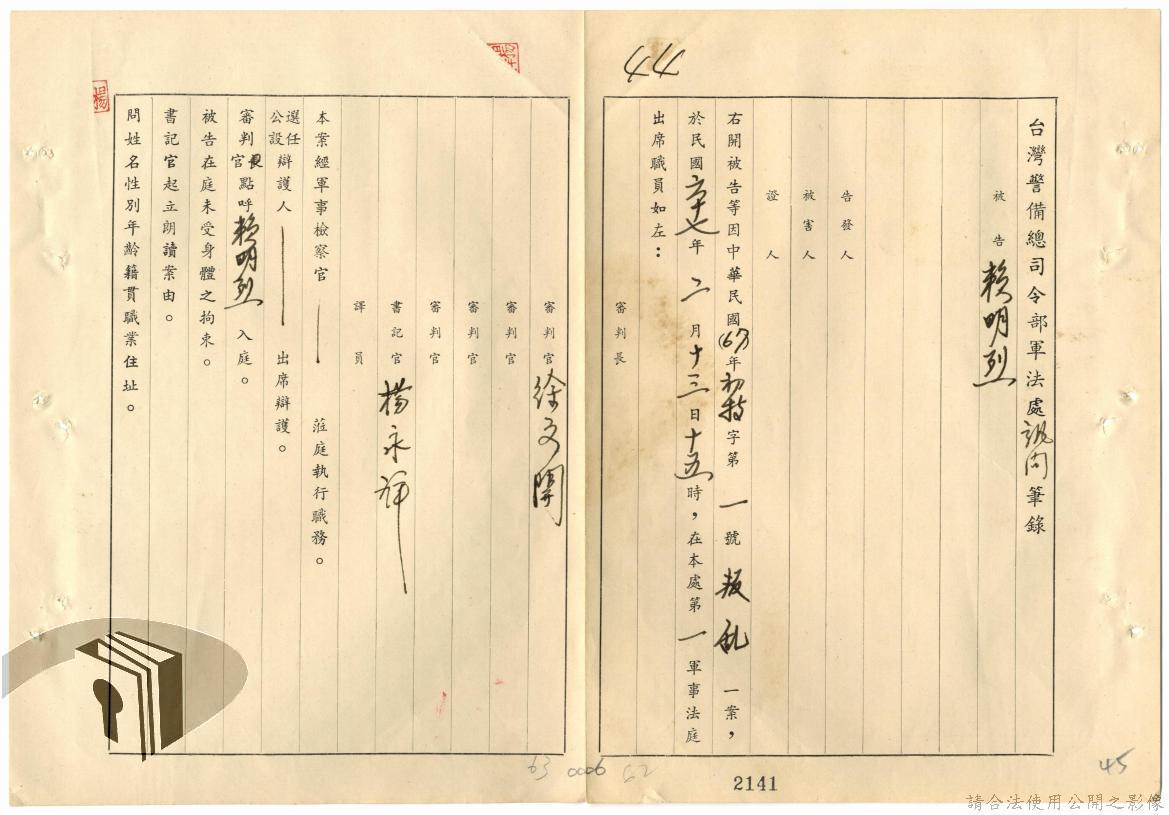 44
台灣警備總司令部軍法處訊問筆錄
被告 賴明烈
告發人
被害人
證人
右開被告等因中華民國(67)年初特字第一號叛亂一案，
於民國六十七年二月十三日十五時，在本處第一軍事法庭
出席職員如左：
審判長
審判官 徐文開
審判官
審判官
審判官
書記官 楊永祥
譯員
本案經軍事檢察官 蒞庭執行職務。
選任
公設辯護人 出席辯護。
審判長
官點呼賴明烈入庭。
被告在庭未受身體之拘束。
書記官起立朗讀案由。
問姓名性別年齡籍貫職業住址。
楊
63 0006 62
2141
45
請合法使用公開之影像